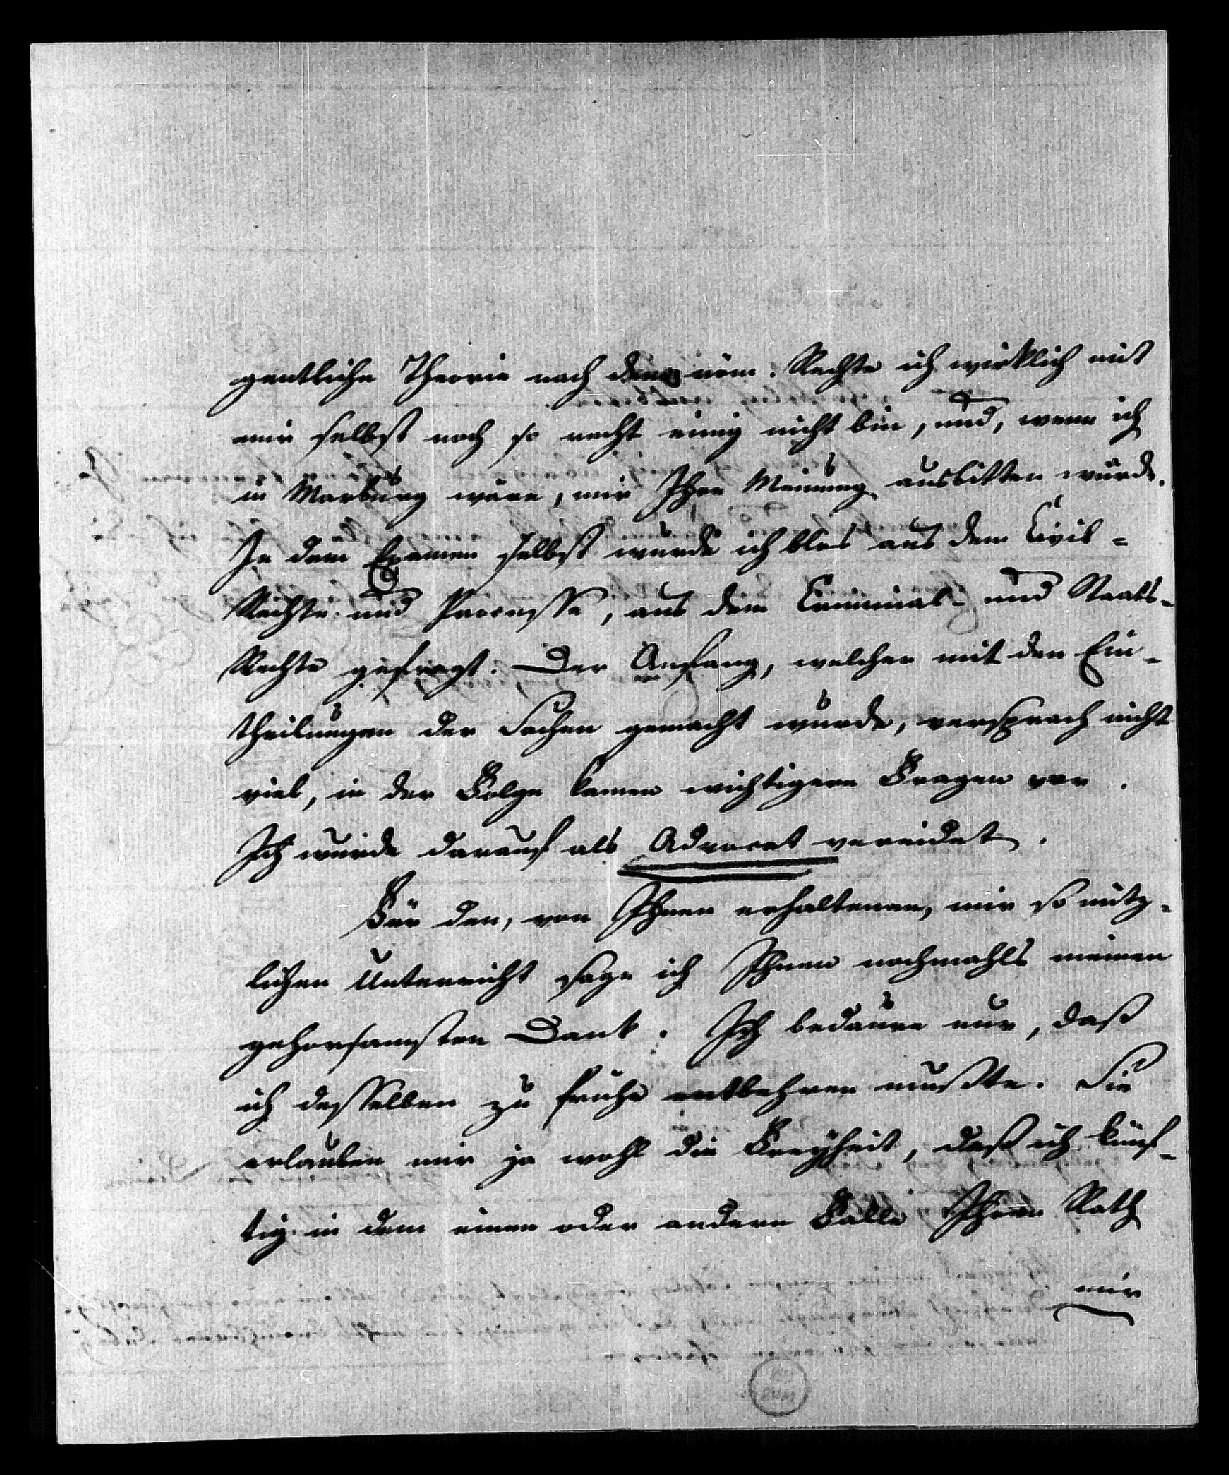 gentliche Theorie nach dem röm: Rechte ich wirklich mit
mir selbst noch so recht einig nicht bin, und, wenn ich
in Marburg wäre, mir Ihre Meinung ausbitten würde.
In dem Examen selbst wurde ich blos aus dem Civil-
Rechte und Processe, aus dem Criminal- und Staats-
Rechte gefragt. Der Anfang, welcher mit den Ein-
theilungen der Sachen gemacht wurde, versprach nicht
viel, in der Folge kamen wichtigere Fragen vor.
Ich wurde darauf als Advocat vereidet.
Für den, von Ihnen erhaltenen, mir so nütz-
lichen Unterricht sage ich Ihnen nochmahls meinen
gehorsamsten Dank. Ich bedaure nur, daß
ich desselben zu frühe entbehren mußte. Sie
erlauben mir ja wohl die Freyheit, daß ich künf-
tig in dem einen oder andern Falle Ihren Rath
mir